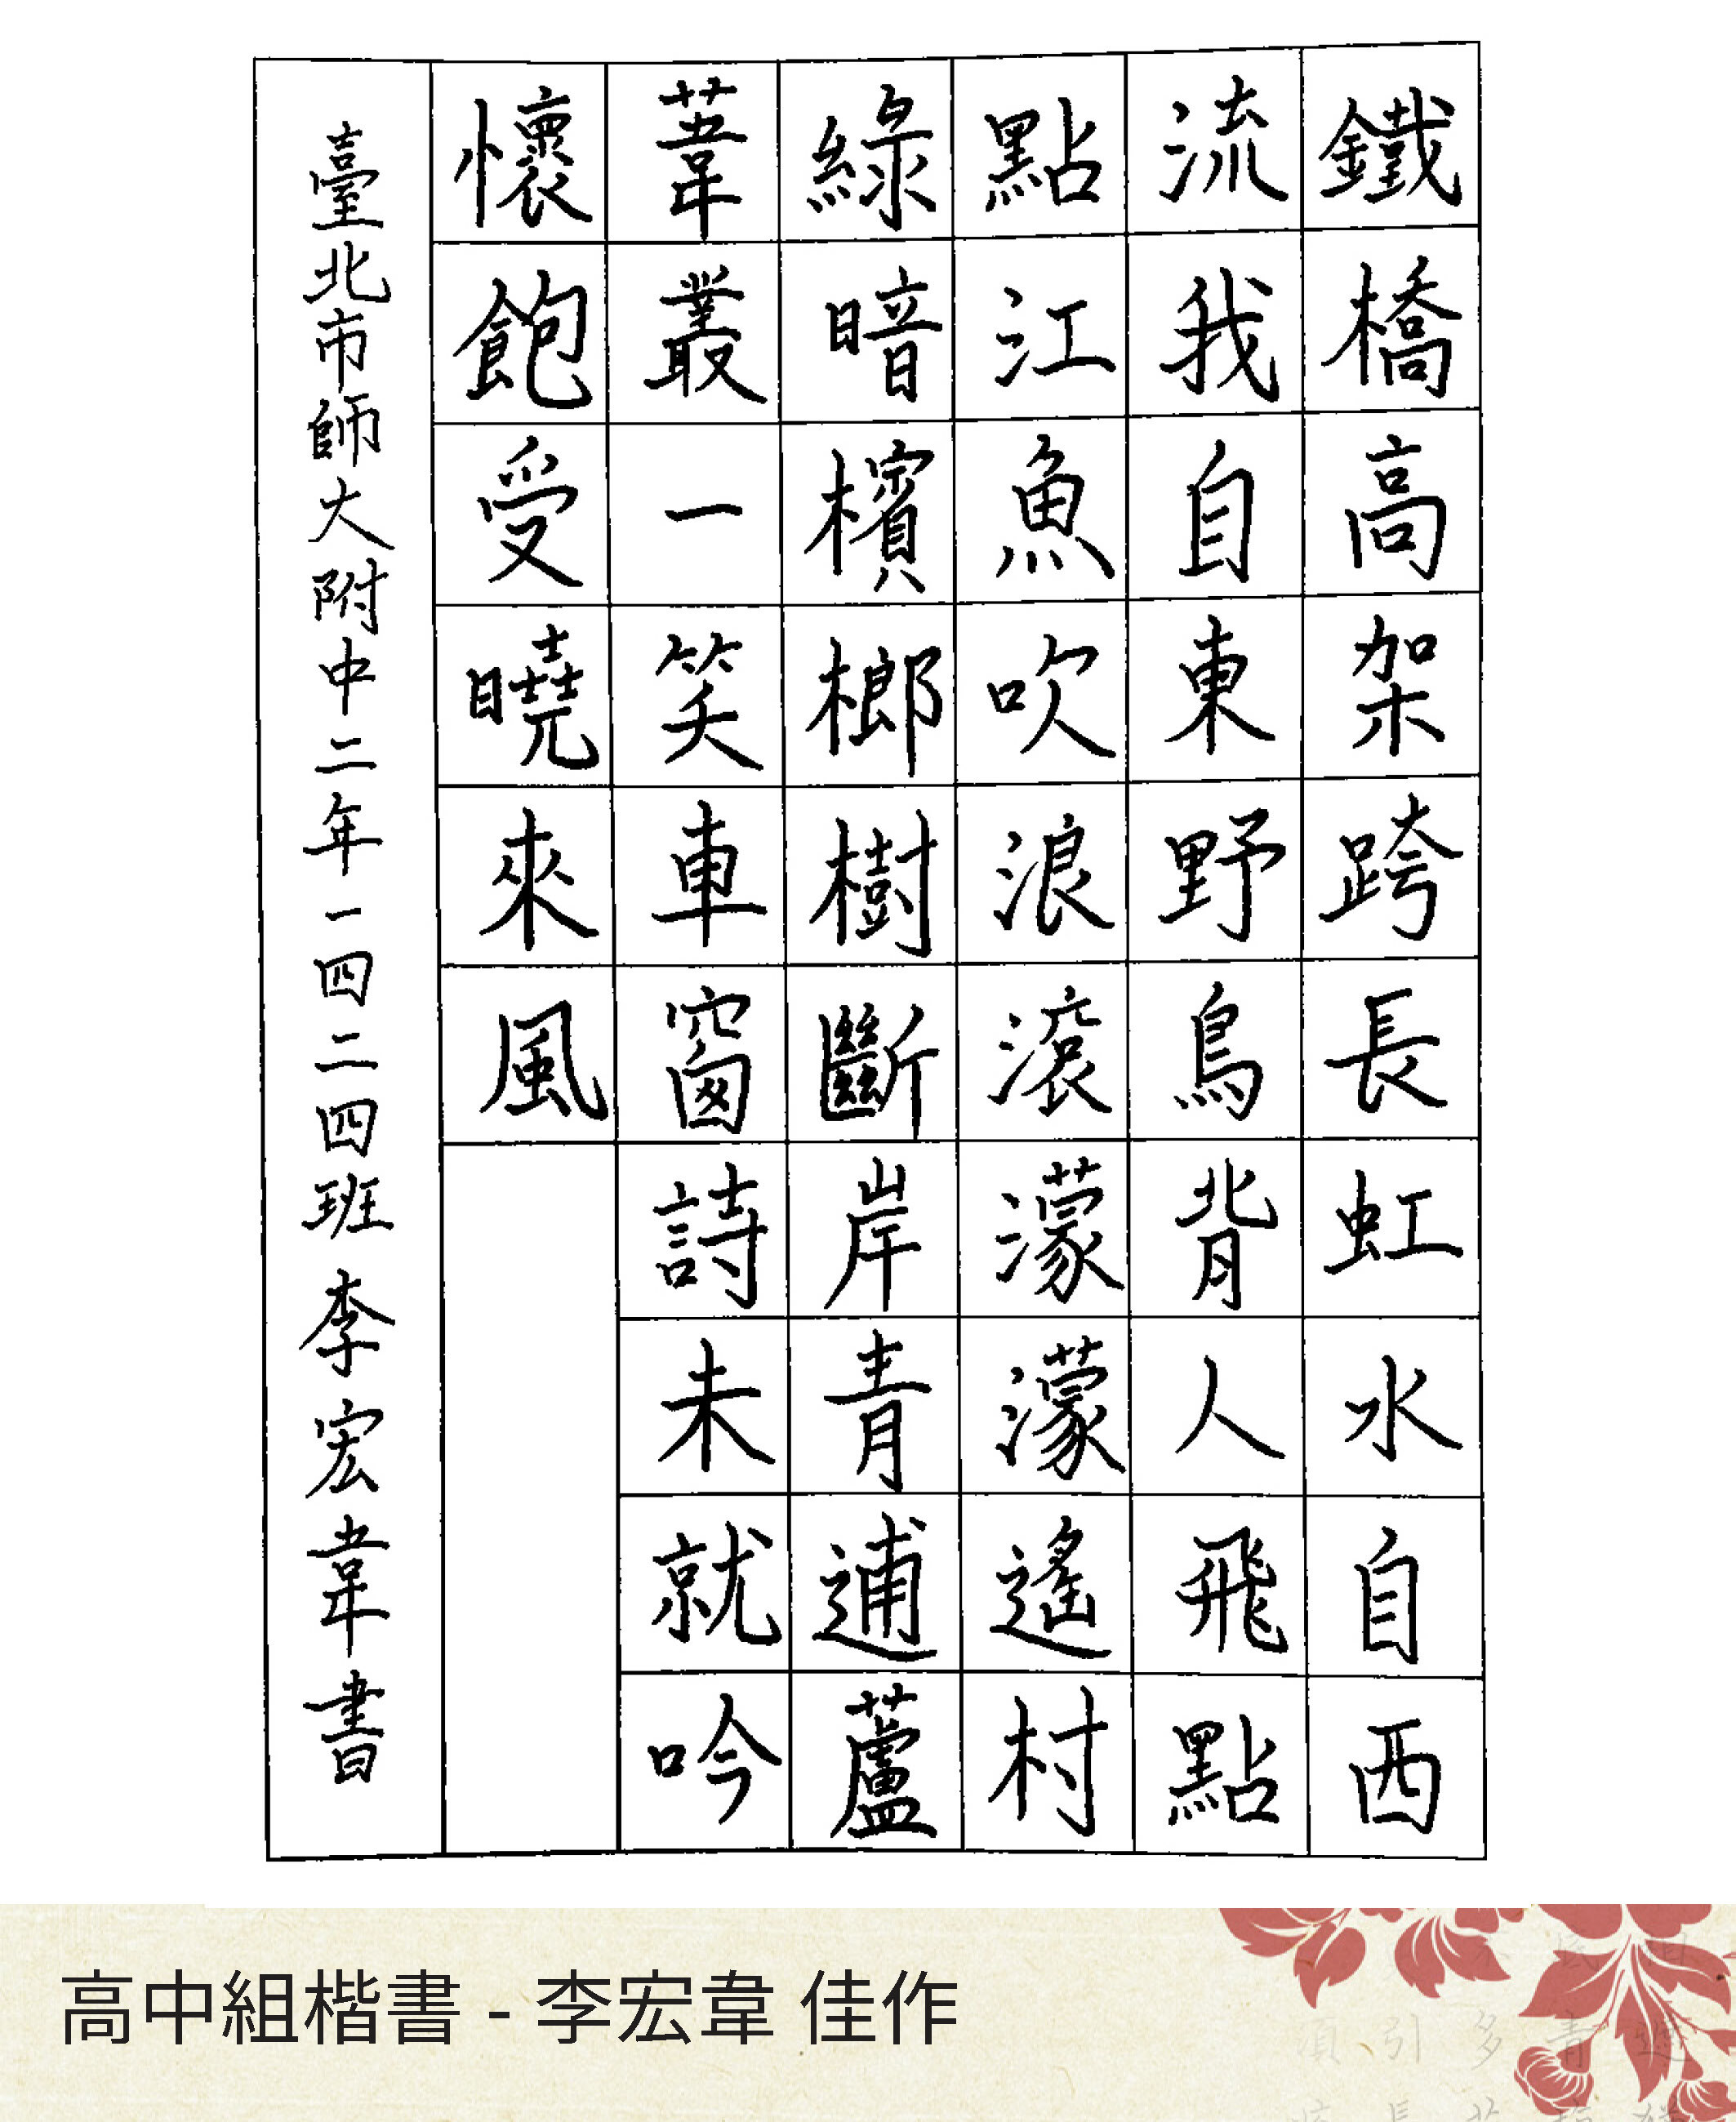 鐵橋高架跨長虹水自西
流我自東野鳥背人飛點
點江魚吹浪滾濛濛遙村
綠暗檳榔樹斷岸青逋蘆
葦叢一笑車窗詩未就吟
懷飽受曉來風
臺北市師大附中二年一四二四班李宏韋書
高中組楷書 - 李宏韋 佳作